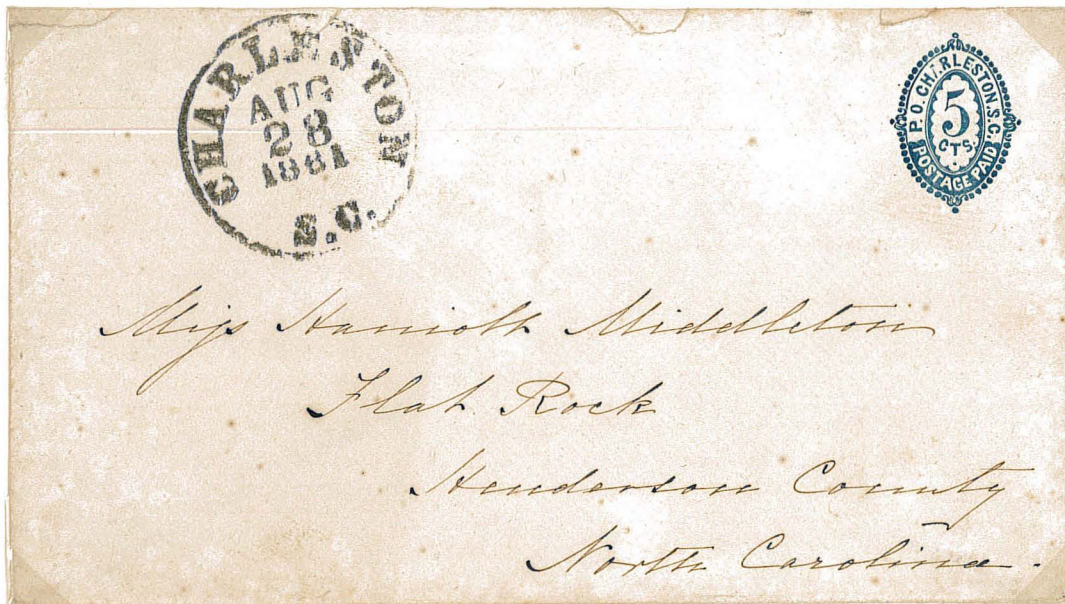 CHARLESTON
AUG
28
1861
S.C.
P.O. CHARLESTON. S.C.
5
CTS.
POSTAGE PAID
Miss Harriott Middleton
Flat Rock
Henderson County
North Carolina.